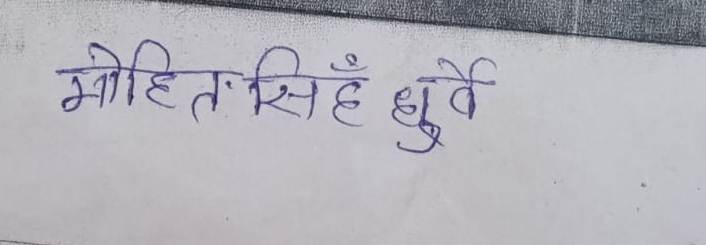 मोहित सिहँ धुर्वे